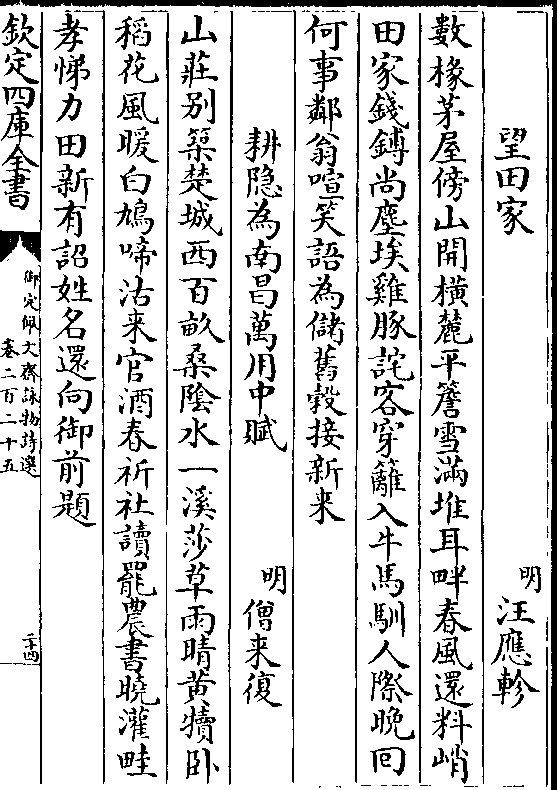 望田家
明 汪應軫
數椽茅屋傍山開橫麓平簷雪滿堆耳畔春風還料峭
田家錢鎛尚塵埃雞豚詫客穿籬入牛馬馴人際晚回
何事鄰翁喧笑語為儲舊穀接新来
耕隠為南昌萬用中賦
明 僧来復
山莊别築楚城西百畝桑陰水一溪莎草雨晴黄犢卧
稻花風暖白鳩啼沽来官酒春祈社讀罷農書曉灌畦
孝悌力田新有詔姓名還向御前題
欽定四庫全書
御定佩文齋詠物詩選
卷二百二十五
二十四